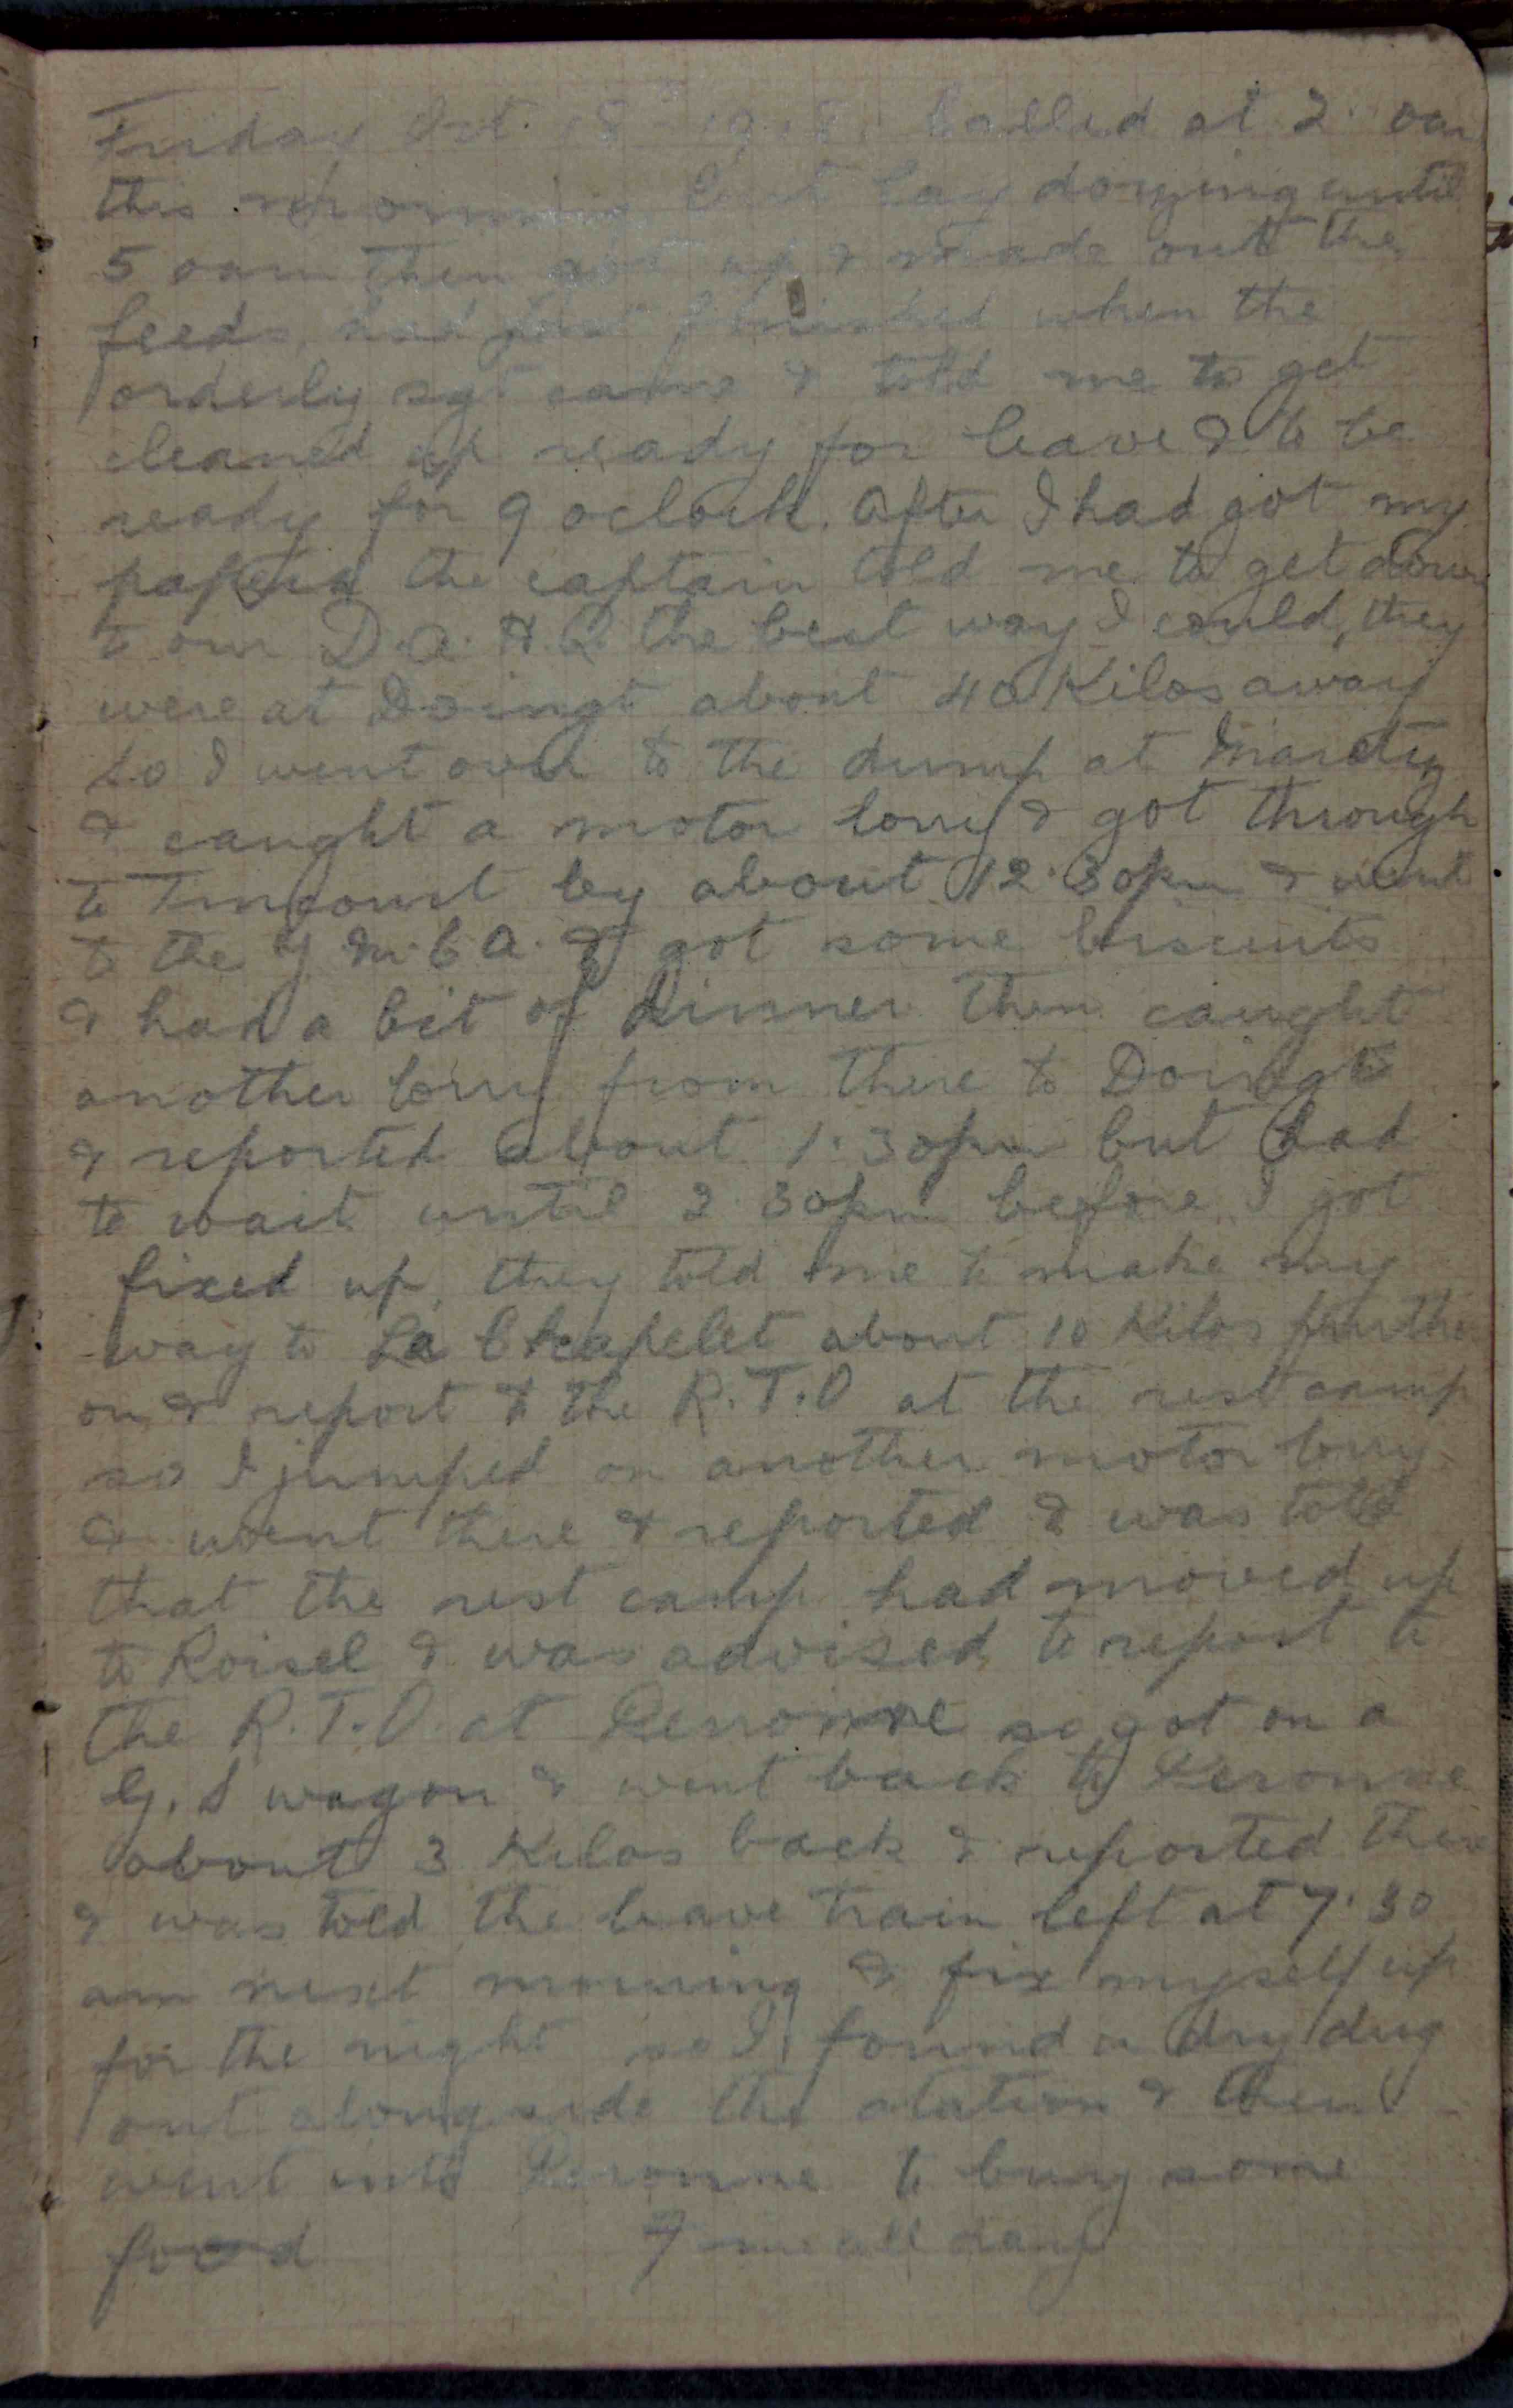 Friday Oct. 18th 1918. Called at 2. 0am
this morning but lay dozing until
5 oam then got up & made out the
feeds, had just finished when the
orderly sgt came & told me to get
cleaned up ready for leave & to be
ready for 9 oclock. After I had got my
papers the captain told me to get down
to our D.A.H.Q. the best way I could, they
were at Doingt about 40 Kilos away
so I went over to the dump at
& caught a motor lorry & got through
to Tincourt by about 12.30pm & went
to the Y.M.C.A. & got some biscuits
& had a bit of dinner then caught
another lorry from there to Doingt
& reported about 1.30pm but had
to wait until 2 30pm before I got
fixed up, they told me to make my
way to La Chapelet about 10 Kilos further
on & report to the R.T.O at the rest camp
so I jumped on another motor lorry
& went there & reported & was told
that the rest camp had moved up
to Roisel & was advised to report to
the R.T.O. at Peronne so got on a
G.S wagon & went back to Peronne
about 3 Kilos back & reported there
& was told the leave train left at 7.30
am next morning & fix myself up
for the night so I found a dry dug
out alongside the station & then
went into Peronne to buy some
food Fine all day